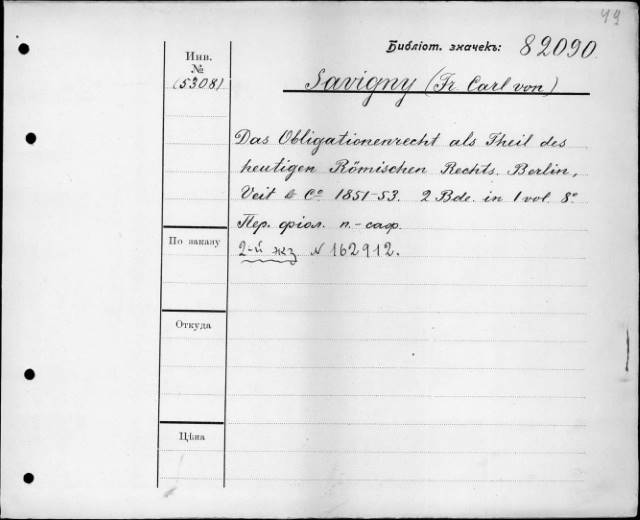 49
Библіот. значекъ: 82090
Инв.
№
(5308)
Savigny (Fr. Carl von)
Das Obligationenrecht als Theil des
heutigen Römischen Rechts. Berlin,
Veit & Cº 1851-53. 2 Bde. in 1 vol. 8º
Пер. фіол. п.-саф.
По заказу
2-й экз N 162912.
Откуда
Цѣна